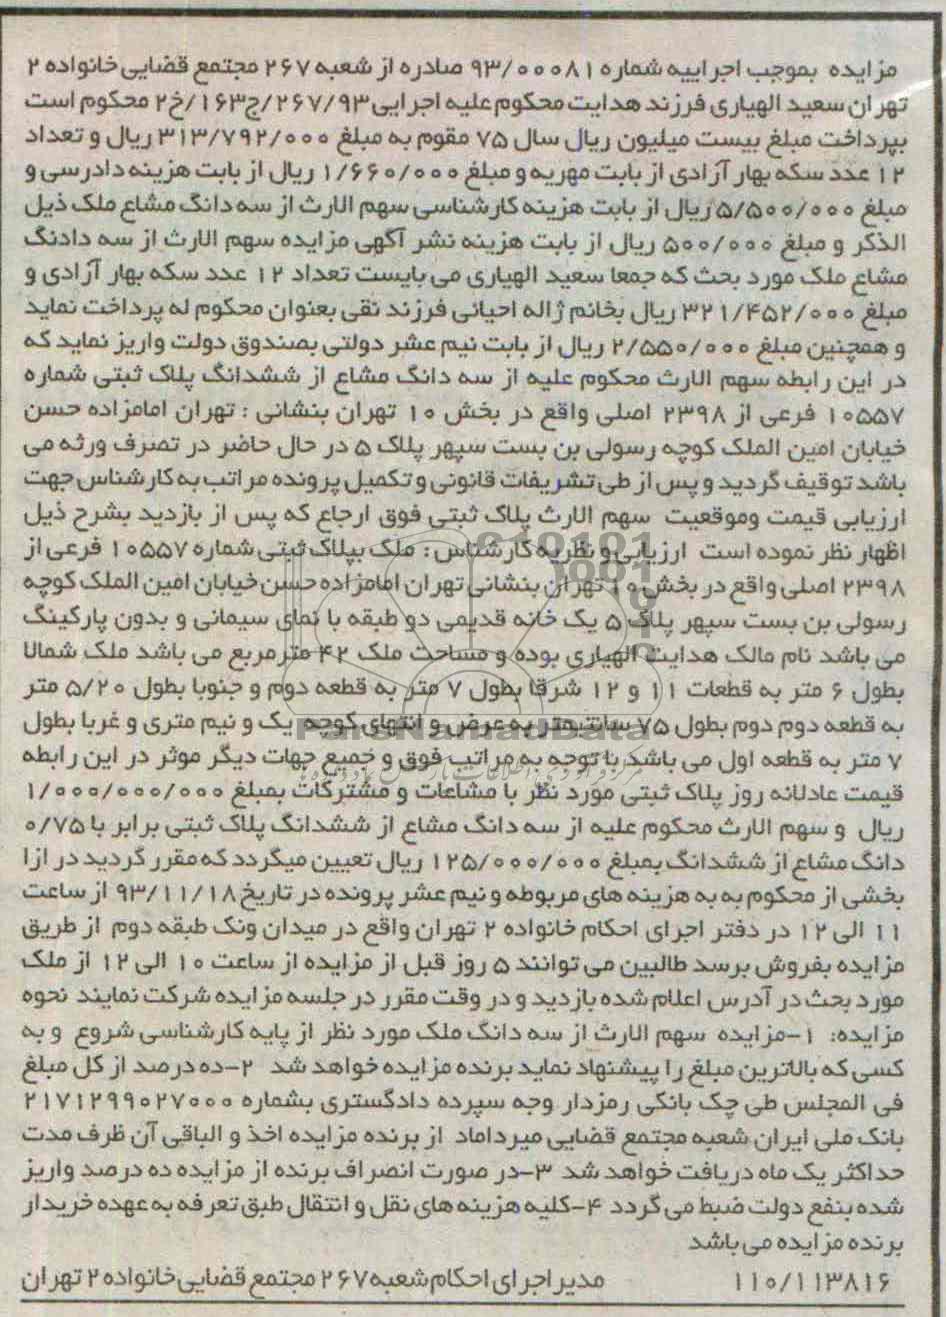 مزایده بموجب اجراییه شماره ۹۳/۰۰۰۸۱ صادره از شعبه ۲۶۷ مجتمع قضایی خانواده ۲
تهران سعید الهیاری فرزند هدایت محکوم علیه اجرایی ۲۶۷/۹۳/ج۱۶۳/خ۲ محکوم است
بپرداخت مبلغ بیست میلیون ریال سال ۷۵ مقوم به مبلغ ۳۱۳/۷۹۲/۰۰۰ ریال و تعداد
۱۲ عدد سکه بهار آزادی از بابت مهریه و مبلغ ۱/۶۶۰/۰۰۰ ریال از بابت هزینه دادرسی و
مبلغ ۵/۵۰۰/۰۰۰ ریال از بابت هزینه کارشناسی سهم الارث از سه دانگ مشاع ملک ذیل
الذکر و مبلغ ۵۰۰/۰۰۰ ریال از بابت هزینه نشر آگهی مزایده سهم الارث از سه دادنگ
مشاع ملک مورد بحث که جمعا سعید الهیاری می بایست تعداد ۱۲ عدد سکه بهار آزادی و
مبلغ ۳۲۱/۴۵۲/۰۰۰ ریال بخانم ژاله احیائی فرزند نقی بعنوان محکوم له پرداخت نماید
و همچنین مبلغ ۲/۵۵۰/۰۰۰ ریال از بابت نیم عشر دولتی بصندوق دولت واریز نماید که
در این رابطه سهم الارث محکوم علیه از سه دانگ مشاع از ششدانگ پلاک ثبتی شماره
۱۰۵۵۷ فرعی از ۲۳۹۸ اصلی واقع در بخش ۱۰ تهران بنشانی : تهران امامزاده حسن
خیابان امین الملک کوچه رسولی بن بست سپهر پلاک ۵ در حال حاضر در تصرف ورثه می
باشد توقیف گردید و پس از طی تشریفات قانونی و تکمیل پرونده مراتب به کارشناس جهت
ارزیابی قیمت وموقعیت سهم الارث پلاک ثبتی فوق ارجاع که پس از بازدید بشرح ذیل
اظهار نظر نموده است ارزیابی و نظریه کارشناس : ملک بپلاک ثبتی شماره ۱۰۵۵۷ فرعی از
۲۳۹۸ اصلی واقع در بخش ۱۰ تهران بنشانی تهران امامزاده حسن خیابان امین الملک کوچه
رسولی بن بست سپهر پلاک ۵ یک خانه قدیمی دو طبقه با نمای سیمانی و بدون پارکینگ
می باشد نام مالک هدایت الهیاری بوده و مساحت ملک ۴۲ مترمربع می باشد ملک شمالا
بطول ۶ متر به قطعات ۱۱ و ۱۲ شرقا بطول ۷ متر به قطعه دوم و جنوبا بطول ۵/۲۰ متر
به قطعه دوم دوم بطول ۷۵ سانتیمتر به عرض و انتهای کوچه یک و نیم متری و غربا بطول
۷ متر به قطعه اول می باشد با توجه به مراتب فوق و جمیع جهات دیگر موثر در این رابطه
قیمت عادلانه روز پلاک ثبتی مورد نظر با مشاعات و مشترکات بمبلغ ۱/۰۰۰/۰۰۰/۰۰۰
ریال و سهم الارث محکوم علیه از سه دانگ مشاع از ششدانگ پلاک ثبتی برابر با ۰/۷۵
دانگ مشاع از ششدانگ بمبلغ ۱۲۵/۰۰۰/۰۰۰ ریال تعیین میگردد که مقرر گردید در ازا
بخشی از محکوم به به هزینه های مربوطه و نیم عشر پرونده در تاریخ ۹۳/۱۱/۱۸ از ساعت
۱۱ الی ۱۲ در دفتر اجرای احکام خانواده ۲ تهران واقع در میدان ونک طبقه دوم از طریق
مزایده بفروش برسد طالبین می توانند ۵ روز قبل از مزایده از ساعت ۱۰ الی ۱۲ از ملک
مورد بحث در آدرس اعلام شده بازدید و در وقت مقرر در جلسه مزایده شرکت نمایند نحوه
مزایده: ۱-مزایده سهم الارث از سه دانگ ملک مورد نظر از پایه کارشناسی شروع و به
کسی که بالاترین مبلغ را پیشنهاد نماید برنده مزایده خواهد شد ۲-ده درصد از کل مبلغ
فی المجلس طی چک بانکی رمزدار وجه سپرده دادگستری بشماره ۲۱۷۱۲۹۹۰۲۷۰۰۰
بانک ملی ایران شعبه مجتمع قضایی میرداماد از برنده مزایده اخذ و الباقی آن ظرف مدت
حداکثر یک ماه دریافت خواهد شد ۳-در صورت انصراف برنده از مزایده ده درصد واریز
شده بنفع دولت ضبط می گردد ۴-کلیه هزینه های نقل و انتقال طبق تعرفه به عهده خریدار
برنده مزایده می باشد
۱۱۰/۱۱۳۸۱۶ مدیر اجرای احکام شعبه ۲۶۷ مجتمع قضایی خانواده ۲ تهران